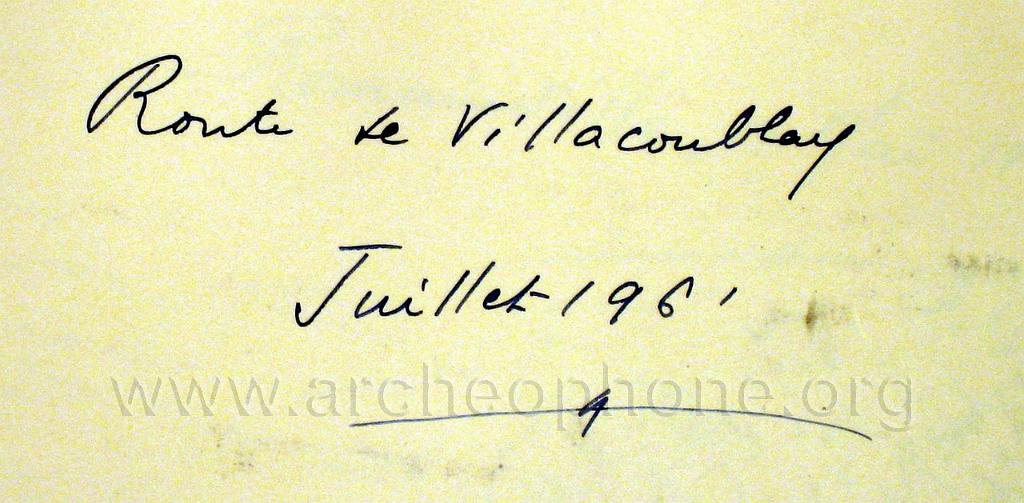 Route de Villacoublay
Juillet 1961
www.archeophone.org
4